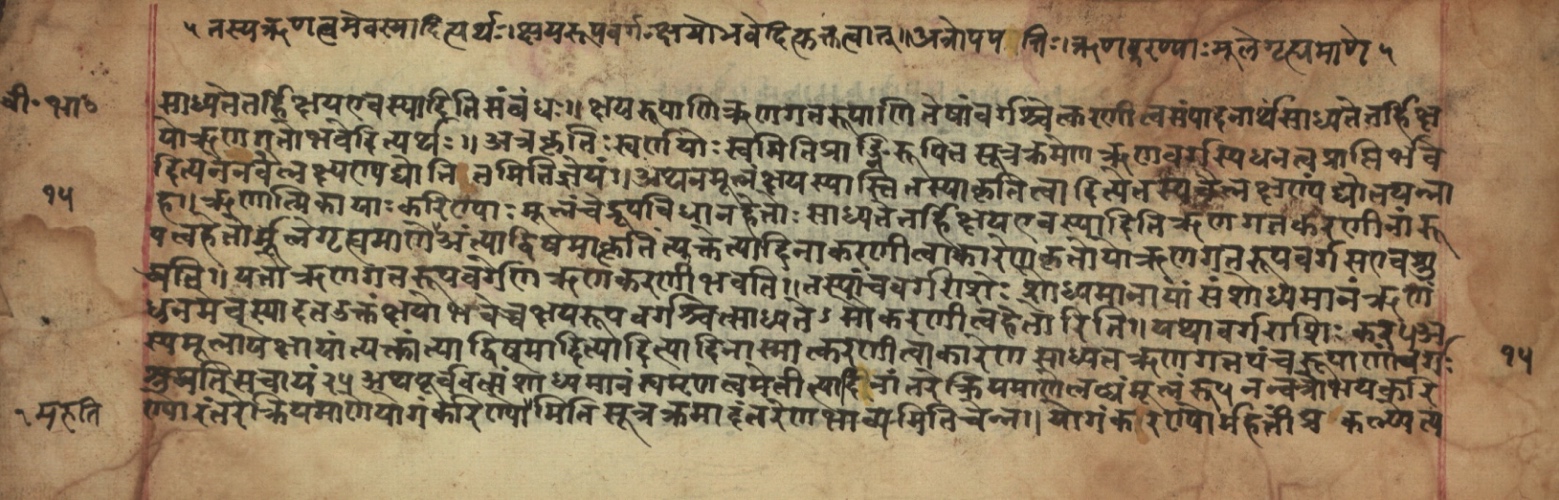 ५ तस्यऋणत्वमेवस्यादित्यर्थः।क्षयरूपवर्गःक्षयोभवेदित्युक्तत्वात्॥अत्रोपपत्तिः।ऋणकरण्याःमूलेगृह्यमाणे ५
बी॰ भा॰
साध्यतेतर्हिक्षयएवस्यादितिसंबंधः॥ क्षयरूपाणिऋणगतरूपाणितेषांवर्गश्चेत्करणीत्वसंपादनार्थंसाध्यतेतर्हिक्ष
योऋणगतोभवेदित्यर्थः॥ अत्रकृतिःस्वर्णयोःस्वमितिप्राङ्निरूपितसूत्रक्रमेणऋणवर्गस्यधनत्वप्राप्तिर्भवे
दित्यनेनवैलक्ष्यण्यद्योतितमितिज्ञेयं॥ अथनमूलंक्षयस्यास्तितस्याकृतित्वादित्येतस्यवैलक्षण्यंद्योतयन्ना
१५
ह॥ऋणात्मिकायाःकरिण्याःमूलंचेद्रूपविधानहेतोःसाध्यतेतर्हिक्षयएवस्यादितिऋणगतकरणीनांरू
पत्वहेतोर्मूलेगृह्यमाणेअंत्याद्विषमात्कृतिंत्यक्त्वेत्यादिनाकरणीत्वाकारेणकृतोयोऋणगतरूपवर्गसएवशु
ध्यति॥ यतोऋणगतरूपवर्गेणऋणकरणीभवति॥तस्यांचवर्गराशेःशोध्यमानायांसंशोध्यमानंऋणं
धनमेवस्यादतउक्तंक्षयोभवेच्चक्षयरूपवर्गश्चेत्साध्यतेऽसौकरणीत्वहेतोरिति॥ यथावर्गराशिःकर२५अ
स्यमूलापेक्षायांत्यक्त्वांत्याद्विषमादित्यादित्यादिनास्मात्करणीत्वाकारेणसाध्यतेऋणगतपंचरूपाणांवर्गः
१५
शुध्यतिसचायं२५ अथपूर्ववत्संशोध्यमानंस्वमृणत्वमेतीत्यादिनांतरेक्रियमाणेलब्धंमूलंरू५ नन्वत्रोभयकरि
२ महति
ण्योरंतरेक्रियमाणेयोगंकरिण्योर्मितिसूत्रक्रमादंतरेणभाव्यमितिचेन्न॥ योगंकरण्योर्महतींप्रकल्प्येत्य